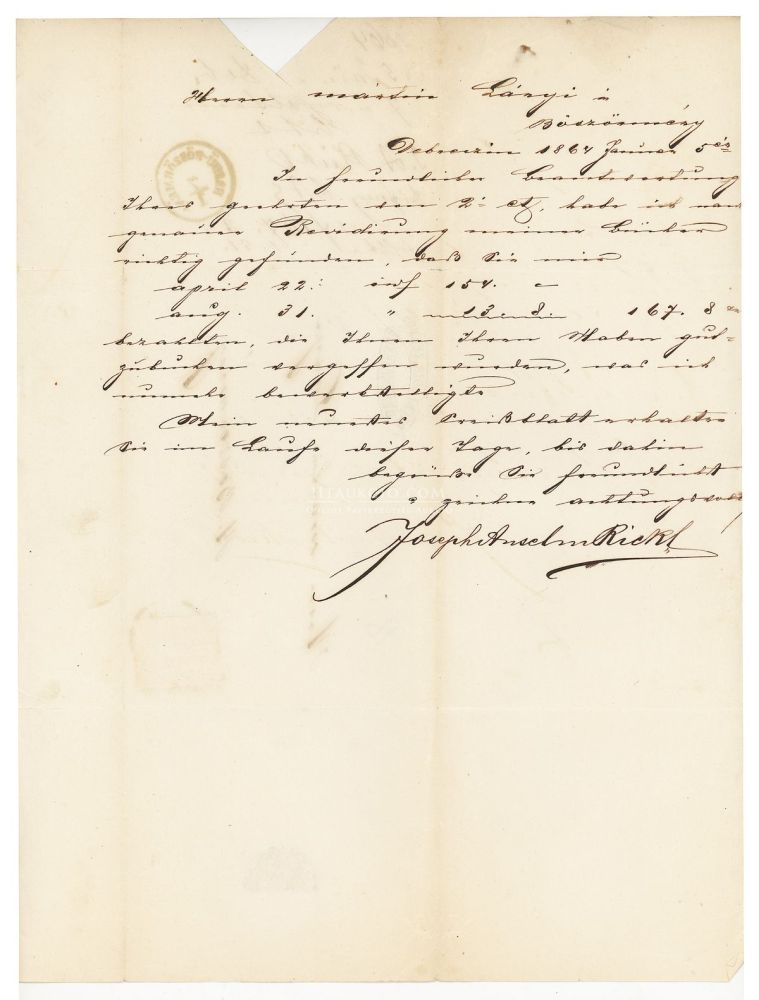 Herrn Martin Lányi in
Böszörmény
Debreczin 1864 Januar 5
In freundlicher Beantwortung
Ihres geehrten vom 2. ct. habe ich nach
genauer Revidirung meiner Bücher
richtig gefunden, daß Sie mir
april 22. 154. –
aug. 31. " 13. 8. 167. 8
bezahlten, die Ihnen Ihrem Haben gut-
zubuchen vergessen wurden, was ich
nunmehr bewerkstelligte
Mein neuestes Preißblatt erhalten
Sie im Laufe dieser Tage, bis dahin
begrüße Sie freundlichst
u zeichne achtungsvoll
Joseph Anselm Rickl